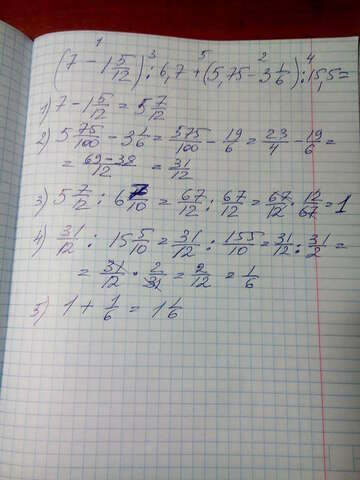 1 3 5 2 4
(7 - 1 5/12) : 6,7 + (5,75 - 3 1/6) : 15,5 =
1) 7 - 1 5/12 = 5 7/12
2) 5 75/100 - 3 1/6 = 575/100 - 19/6 = 23/4 - 19/6 =
= (69-38)/12 = 31/12
3) 5 7/12 : 6 7/10 = 67/12 : 67/12 = 67/12 : 12/67 = 1
4) 31/12 : 15 5/10 = 31/12 : 155/10 = 31/12 : 31/2 =
= 31/12 · 2/31 = 2/12 = 1/6
5) 1 + 1/6 = 1 1/6